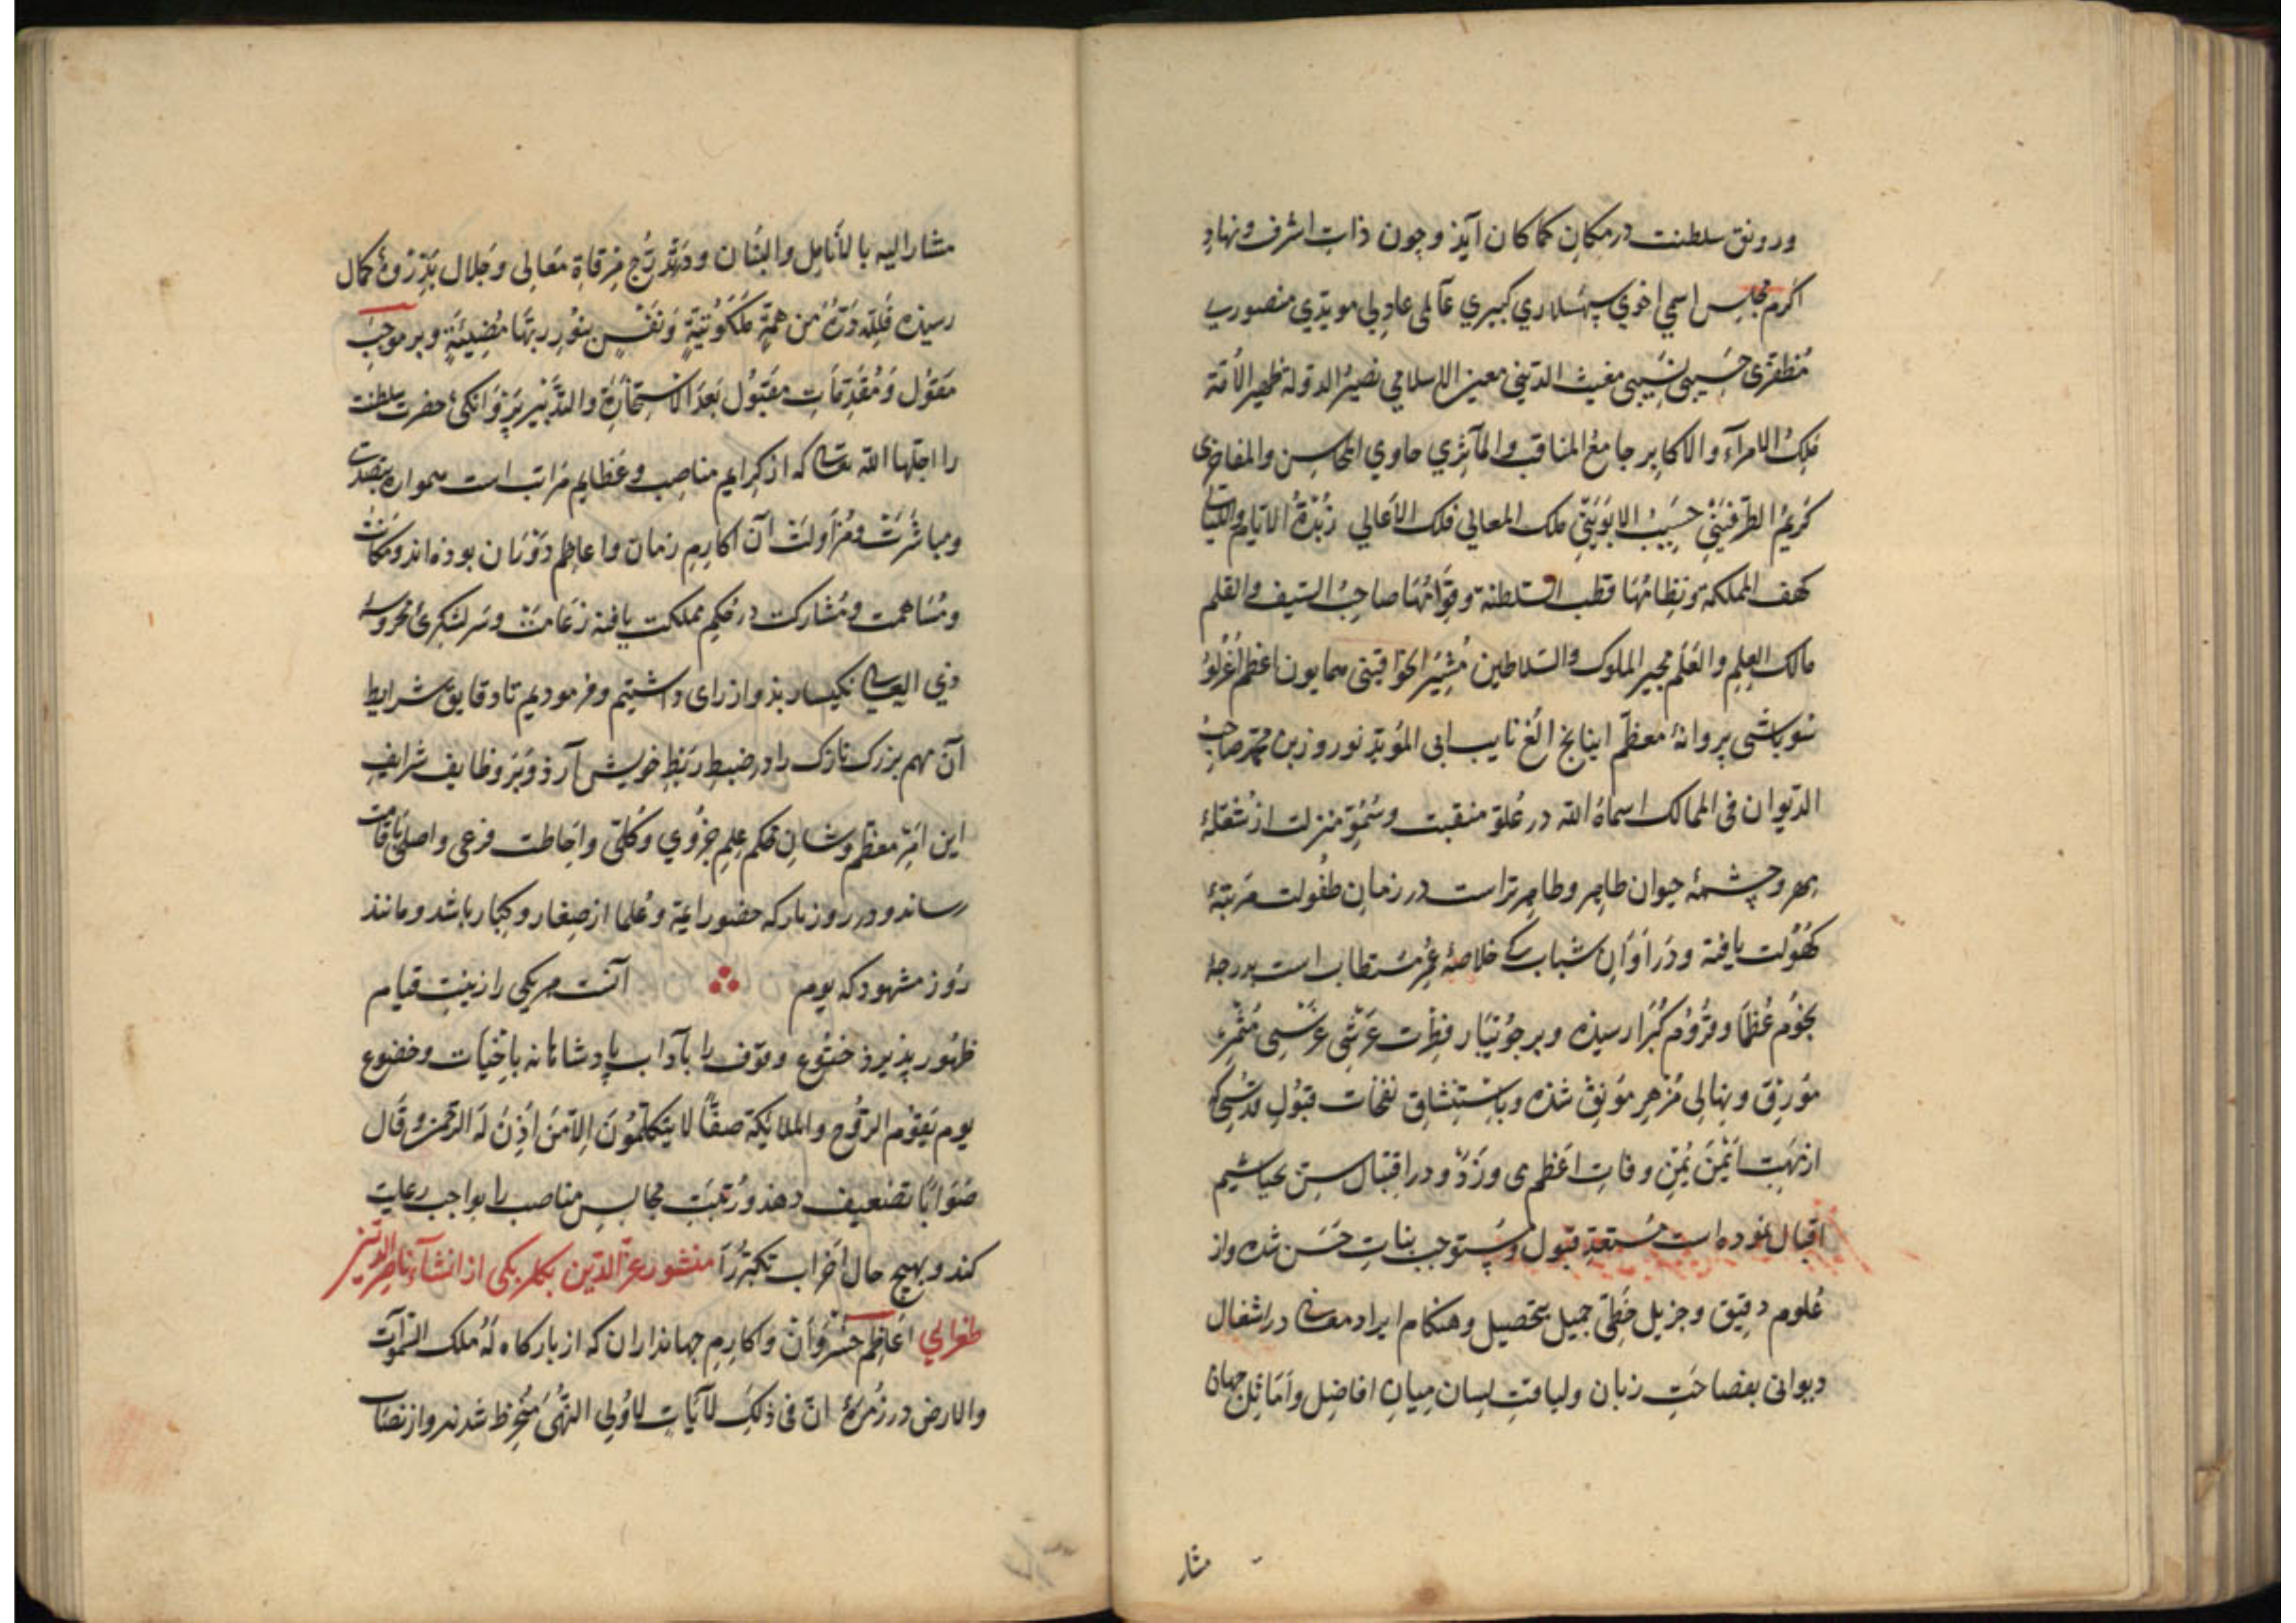 ورونق سلطنت در مکان کماکان آیذ وجون ذات اشرف ونهاد
اکرم مجلس اسمی اخوی سپهسلاری کبیری عالمی عادلی مویدی منصوری
مظفری حسیبی نسیبی مغیث الدینی معین الاسلامی نصیر الدولة ظهیر الأمة
ملک الامرآء والاکابر جامع المناقب والمآثری حاوی المحاسن والمفاخری
کریم الطرفینی حسیب الابوینی ملک المعالی فلک الاعالی زبدة الایام واللیالی
کهف المملکة ونظامها قطب السلطنة وقوامها صاحب السیف والقلم
مالک العلم والعلم مجیر الملوک والسلاطین مشیر الخواقینی همایون اعظم اغرلو
سوباشی پروانهٔ معظم اینانج الغ نایب ابی المؤید نوروز بن محمد صاحب
الدیوان فی الممالک اسماه الله در علو منقبت وسمو منزلت از شعلهٔ
مهر وچشمهٔ حیوان طاهر وظاهر تراست در زمان طفولت مرتبهٔ
کهولت یافته ودر اوان شباب که خلاصهٔ عمر مستطاب است بدرجهٔ
نجوم عظما وقروم کبرا رسیذه وبر جویبار فطرت غرسی مثمر
مورق ونهالی مزهر مونق شذه وباستنشاق نفحات قبول
از مهب ایمن یمن وفات اعظمی ورد ودر اقتبال سن
اقبال نموده است مستعد قبول ومستوجب بنات حسن شده واز
علوم دقیق وجزیل حظی جمیل بتحصیل وهنکام ایراد معانی در اشغال
دیوانی بفصاحت زبان ولباقت لسان میان افاضل واماثل جهان
مشار
مشار الیه بالأنامل والبنان ودر تدرج مرقاة معالی وجلال بذروهٔ کمال
رسیذه فلله دره من همة ملکوتیة ونفس بنور ربها مضیئة وبر موجب
معقول ومقدمات مقبول بعد الاستخارة والتدبیر حضرت سلطنت
را اجلها الله تعالی که از کرایم مناصب وعظایم مراتب است همواره متصدی
ومباشرت ومزاولت آن اکارم زمان واعاظم دوران بوذه اند ومکانت
ومساهمت ومشارکت در حکم مملکت یافته زعامت وسر لشکری محروسهٔ
بذو ارزانی داشتیم وفرمودیم تا دقایق شرایط
آن مهم بزرک نازک را در ضبط ربط خویش آرذ وبر وظایف شرایف
این امر معظم وشان محکم علم جزوی وکلی واحاطت فرعی واصلی باقامت
رساند ودر روز بار که حضور ایمة وعلما از صغار وکبار باشد ومانند
روز مشهود که یوم آنست هر یکی را زینت قیام
ظهور پذیرد خشوع وقوف را بآداب پادشاهانه باخبات وخضوع
یوم یقوم الروح والملائکة صفا لا یتکلمون الا من اذن له الرحمن وقال
صوابا تضعیف دهذ ورتبت مجالس مناصب را بواجب رعایت
کند وبهیج حال اضراب نکند منشور عز الدین بکلربکی از انشآء ناصر الدین
طغرایی اعاظم خسروان واکارم جهانداران که از بارکاه له ملک السموات
والارض در زمرهٔ ان فی ذلک لآیات لاولی النهی منخرط شدند واز نصاب